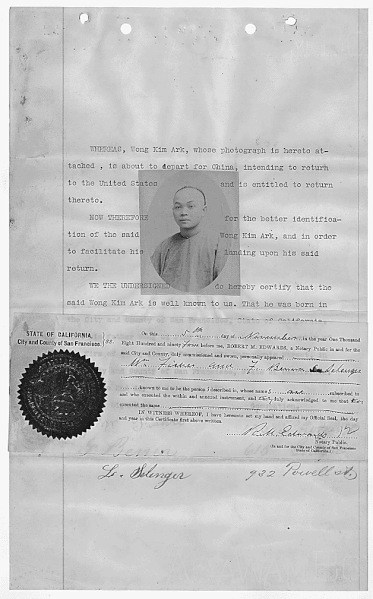 WHEREAS, Wong Kim Ark, whose photograph is hereto at-
tached , is about to depart for China, intending to return
to the United States and is entitled to return
thereto.
NOW THEREFORE for the better identifica-
tion of the said Wong Kim Ark, and in order
to facilitate his landing upon his said
return.
WE THE UNDERSIGNED do hereby certify that the
said Wong Kim Ark is well known to us. That he was born in
STATE OF CALIFORNIA,
City and County of San Francisco. ss.
On this 5th day of November in the year One Thousand
Eight Hundred and ninety four before me, ROBERT M. EDWARDS, a Notary Public in and for the
said City and County, duly commissioned and sworn, personally appeared
Selenger
known to me to be the person described in, whose name subscribed to
and who executed the within and annexed instrument, and they duly acknowledged to me that they
executed the same
IN WITNESS WHEREOF, I have hereunto set my hand and affixed my Official Seal, the day
and year in this Certificate first above written.
R. M. Edwards
Notary Public.
In and for the City and County of San Francisco
State of California.
L. Selenger 932 Powell st.